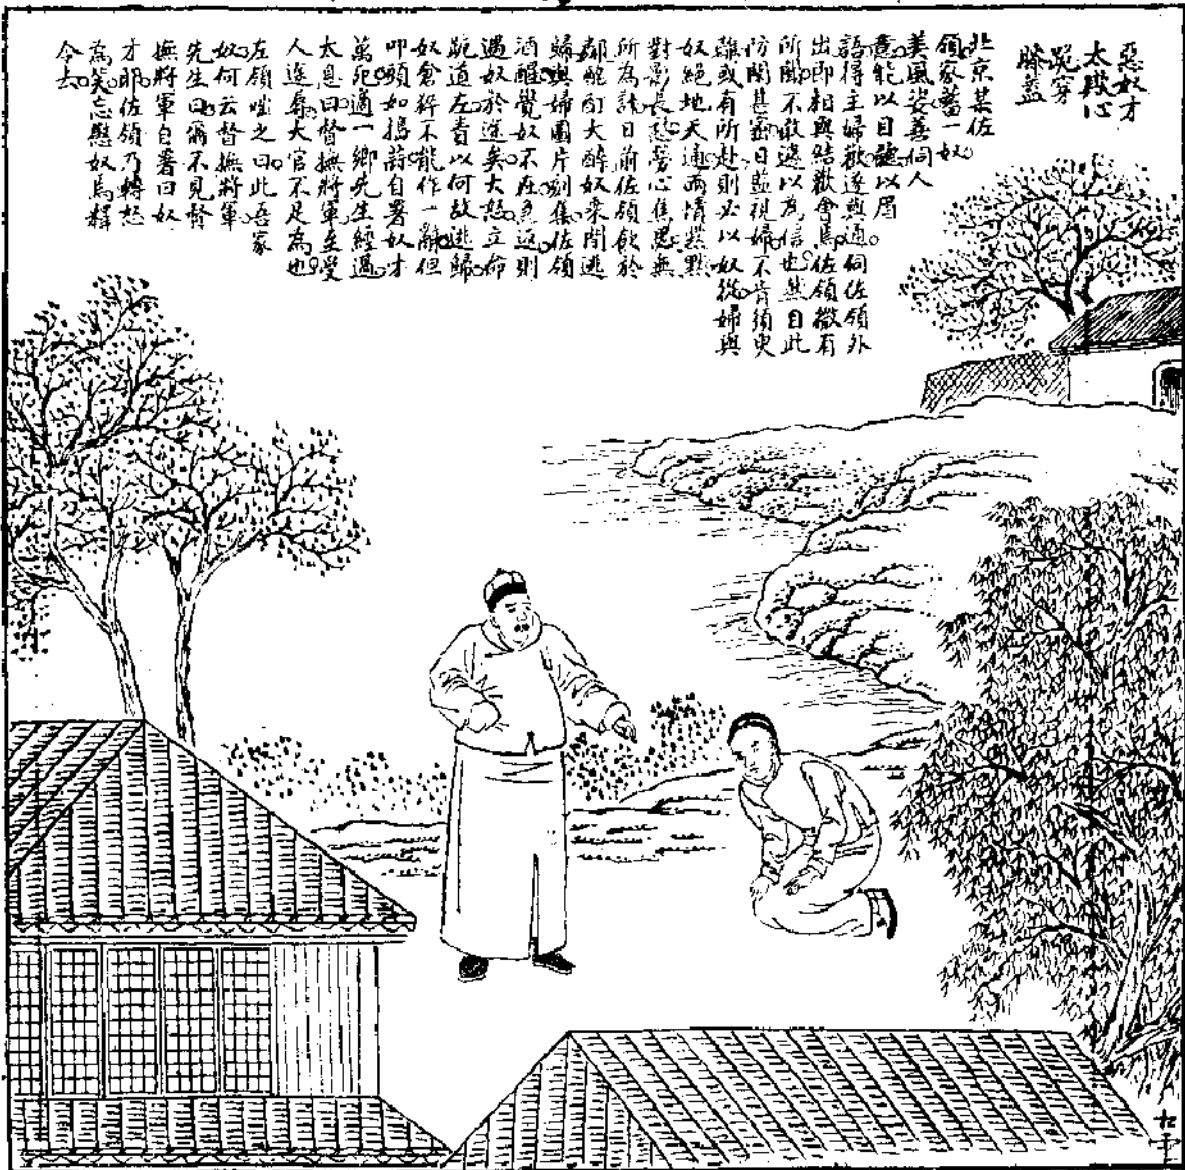 惡奴才
太毀心
跪穿
膝蓋
北京某佐
領家蓄一奴
美風姿善伺人
意能以目聽以眉
語得主婦歡遂與通伺佐領外
出即相與結歡會焉佐領微有
所聞不敢遽以為信也然自此
防閑甚密日監視婦不肯須臾
離或有所赴則必以奴從婦與
奴絕地天通兩情默默
對影長愁勞心焦思無
所為計日前佐領飲於
鄰酩酊大醉奴乘間逃
歸與婦團片刻集佐領
酒醒覺奴不在急返則
遇奴於途矣大怒立命
跪道左責以何故逃歸
奴倉猝不能作一辭但
叩頭如搗蒜自署奴才
萬死適一鄉先生經過
太息曰督撫將軍生受
人逐辱大官不足為也
左領嗤之曰此吾家
奴何云督撫將軍
先生曰爾不見督
撫將軍自署曰奴
才耶佐領乃轉怒
為笑忘慰奴馬釋
令去